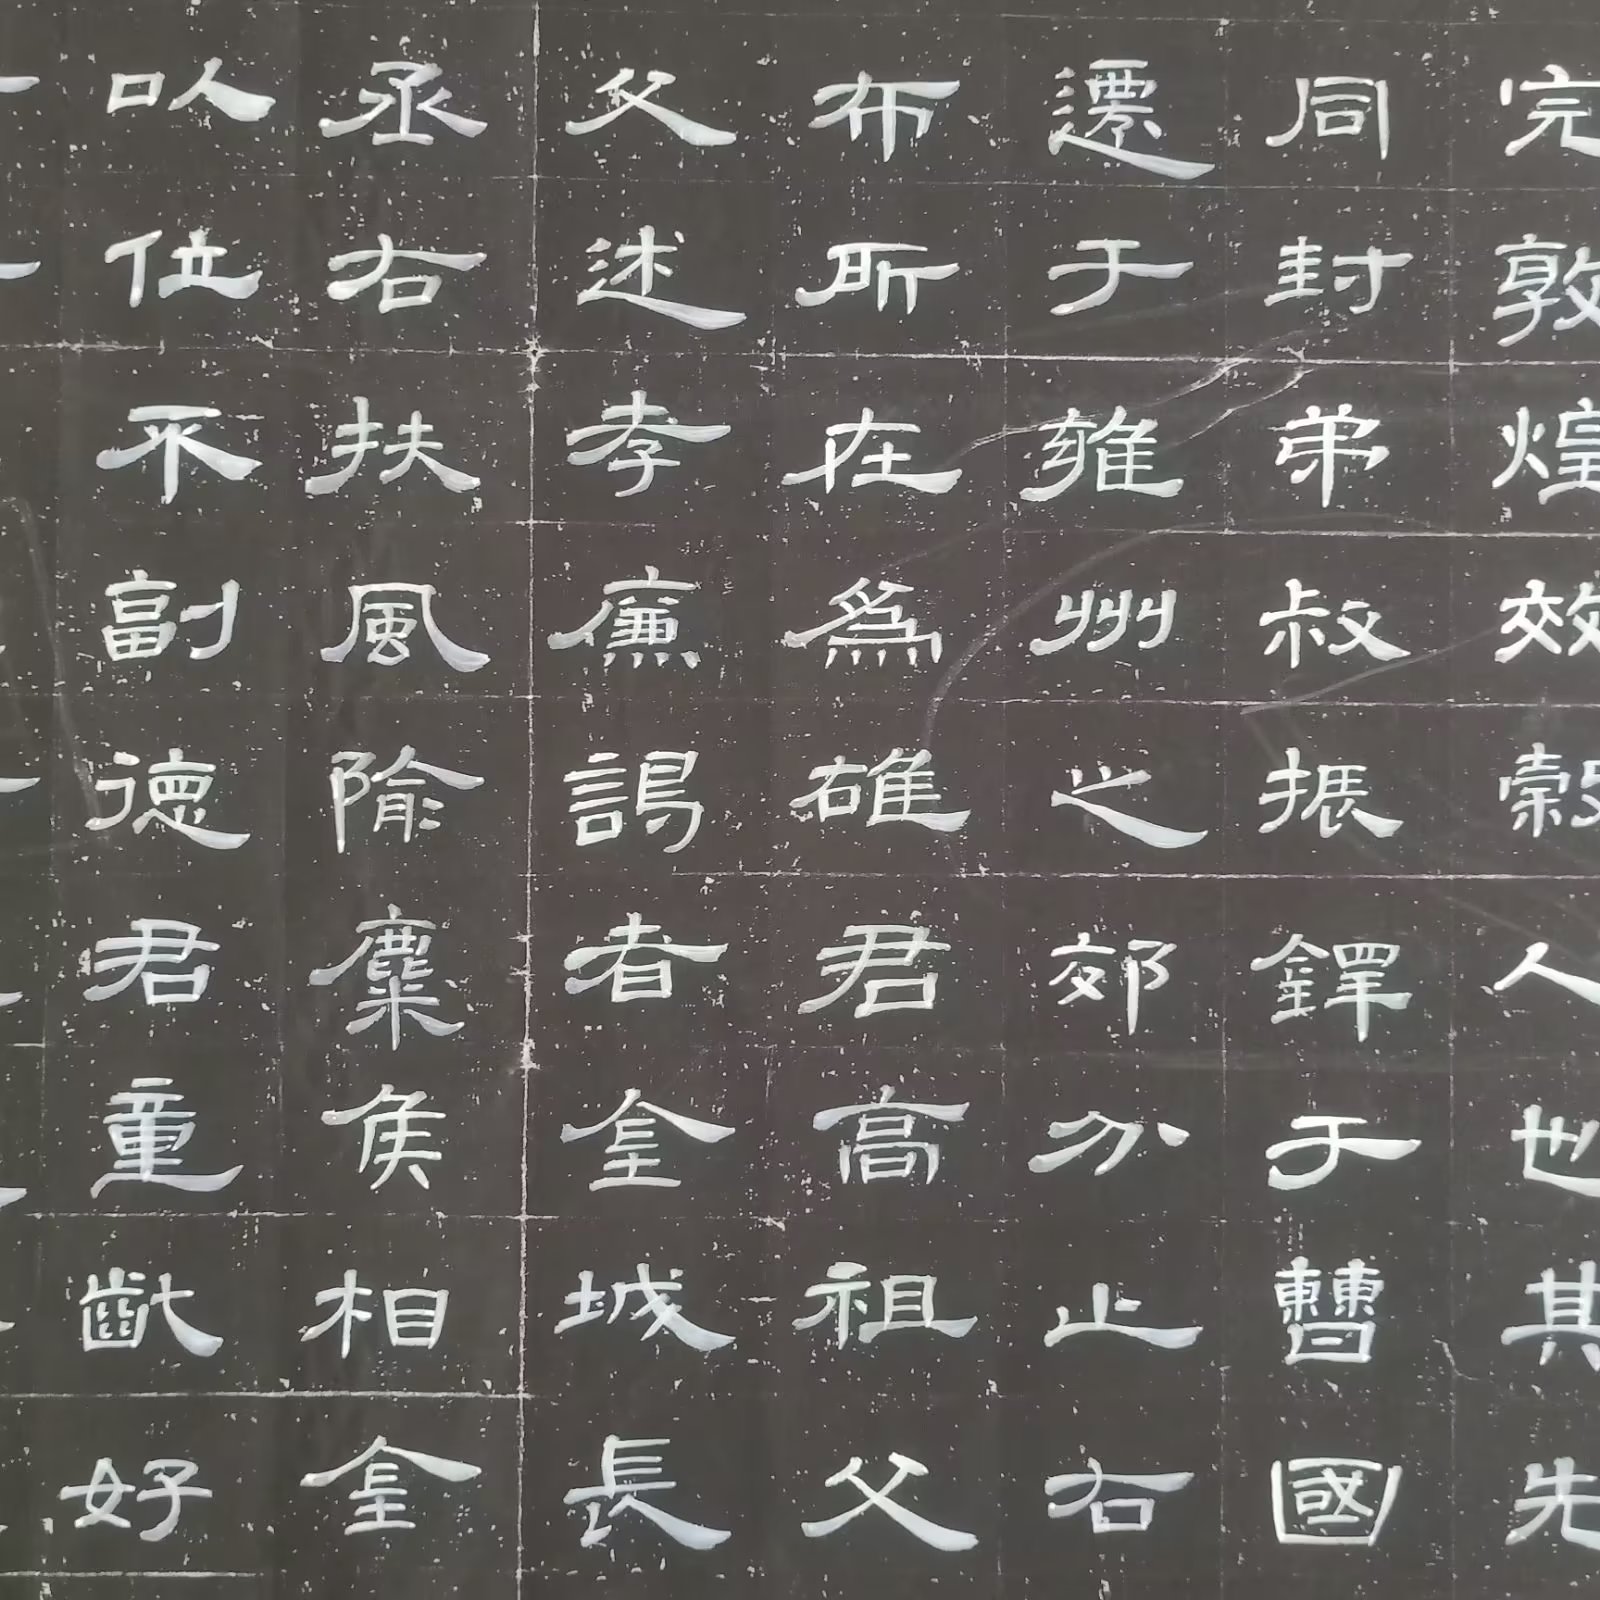 完敦煌效穀人也其先
同封弟叔振鐸于曹國
遷于雍州之郊分止右
布所在爲雄君高祖父
父述孝廉謁者金城長
丞右扶風隃麋侯相金
以位不副德君童齔好